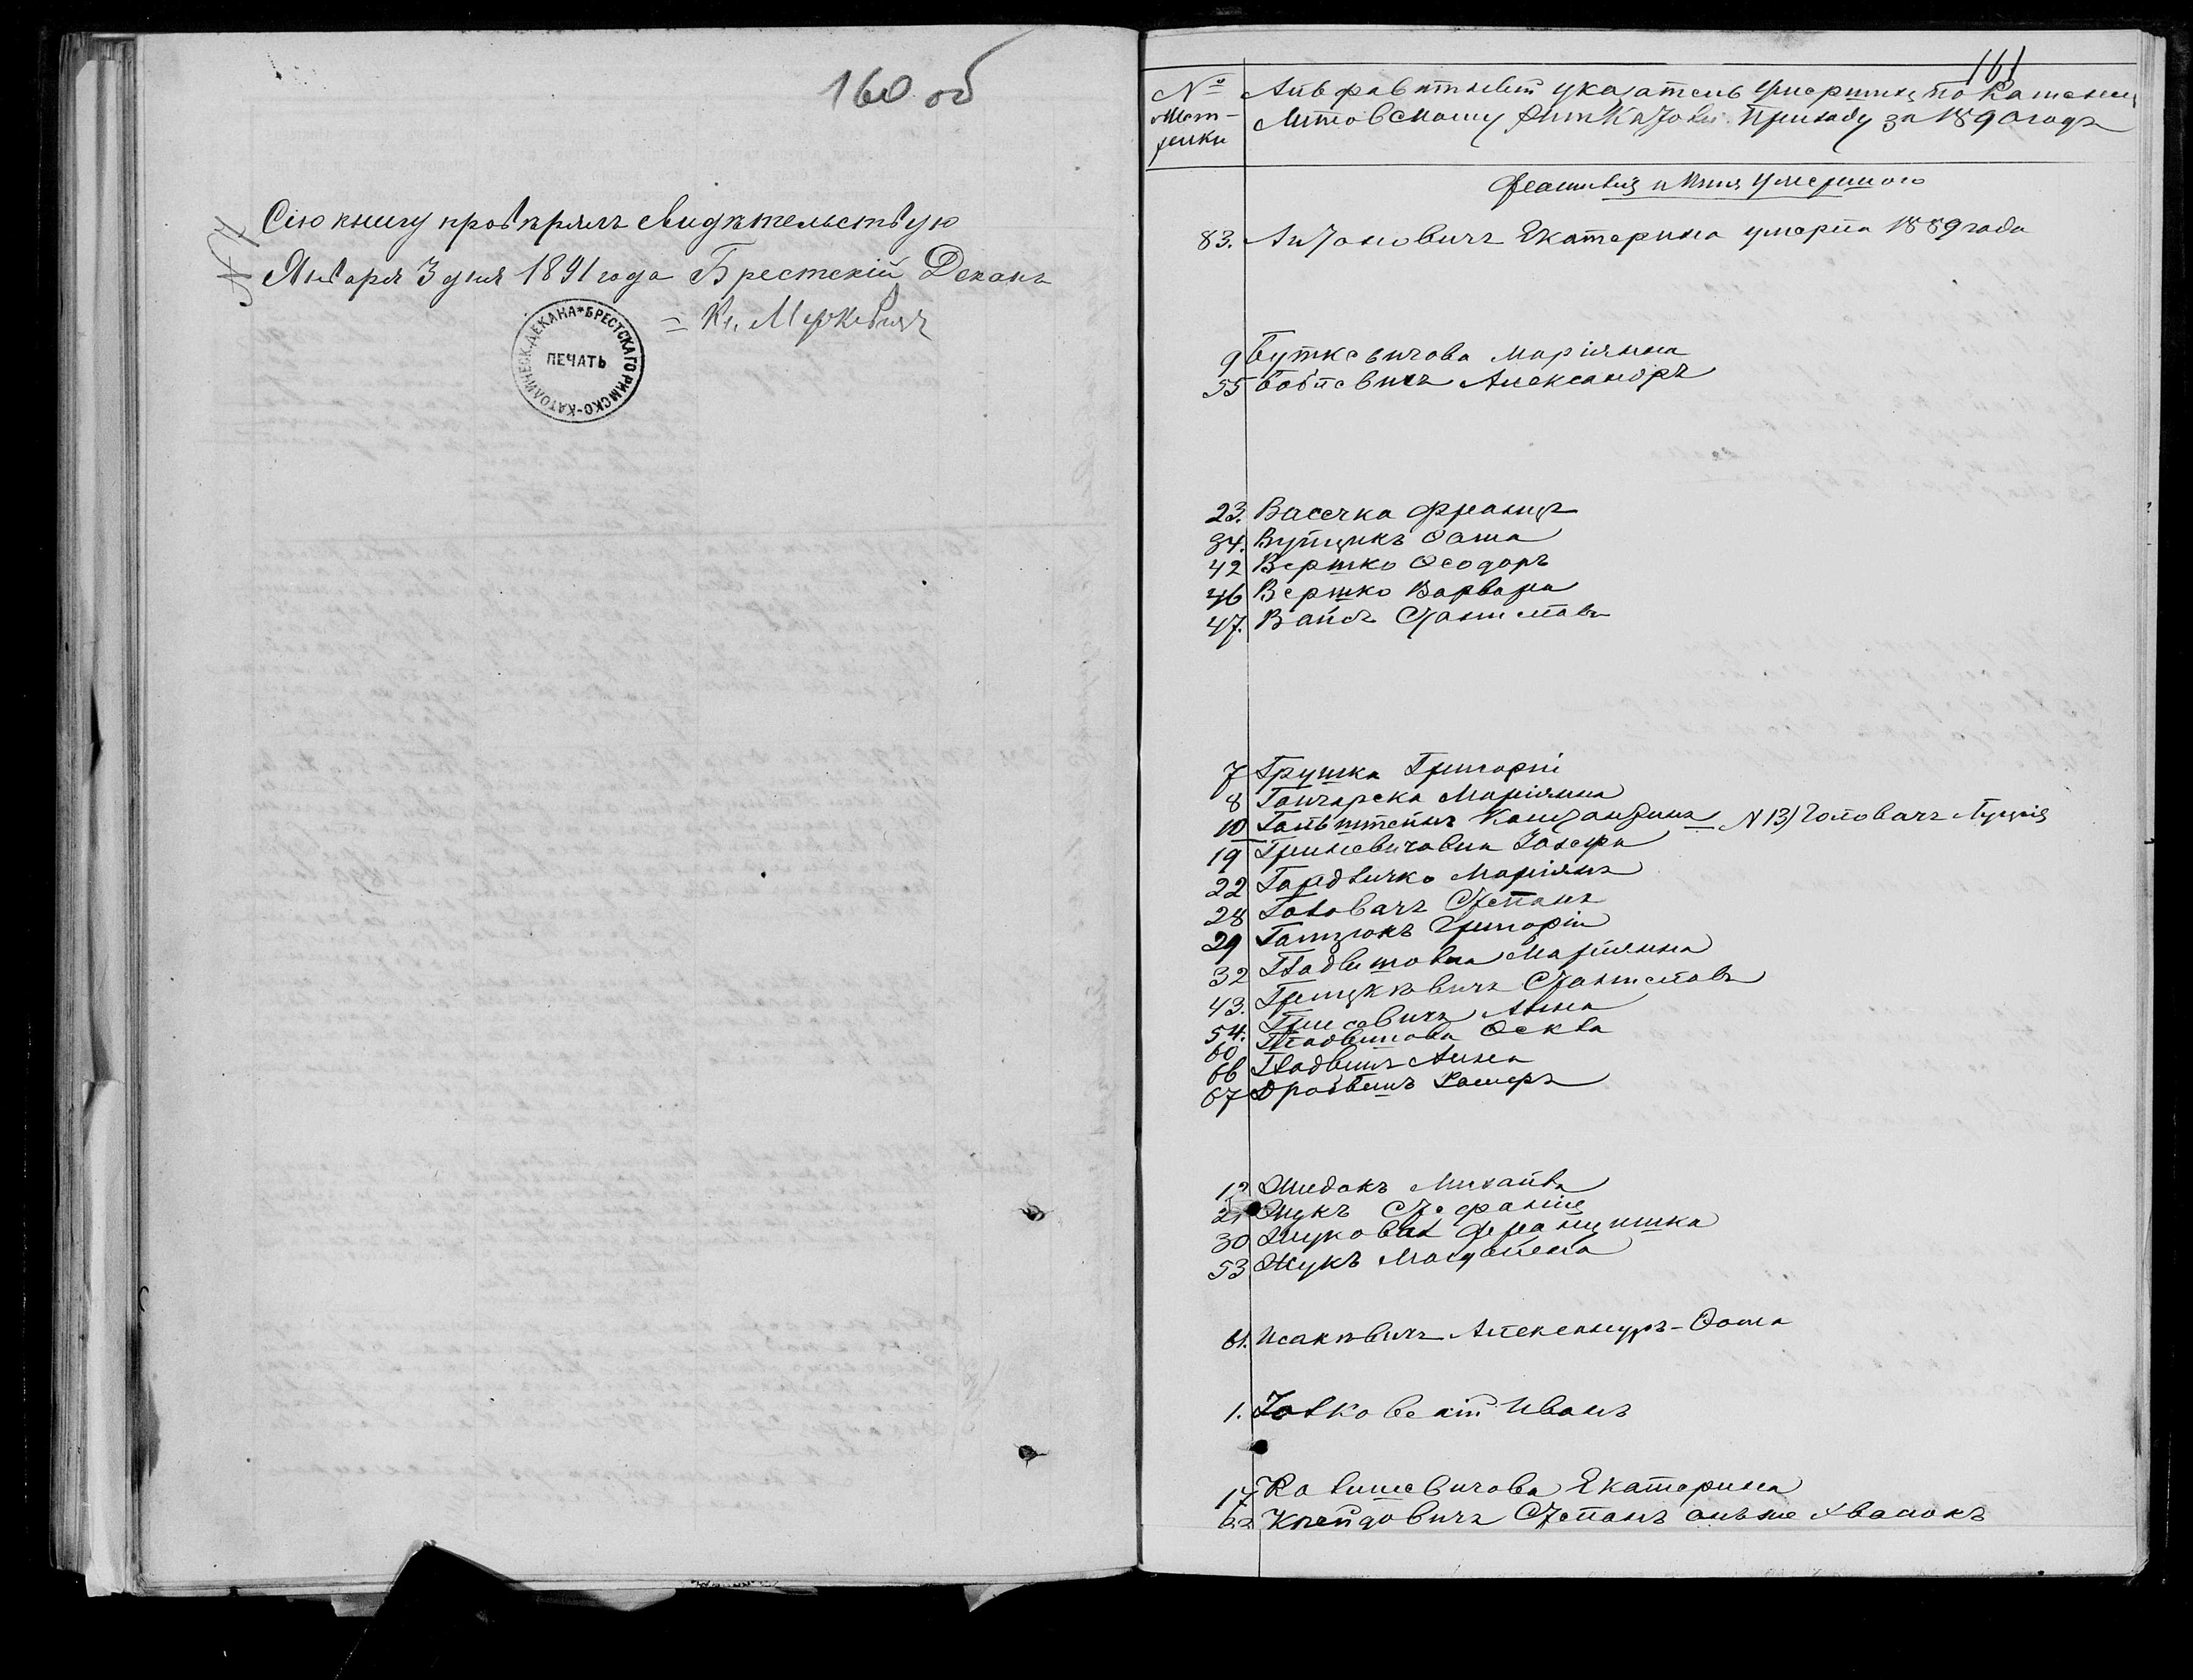 160 об
Сію книгу провѣрялъ свидѣтельствую
Января 3 дня 1891 года Брестскій Деканъ
Кс. Меркевичъ
ПЕЧАТЬ
*БРЕСТСКАГО РИМСКО-КАТОЛИЧЕСК. ДЕКАНА
161
№ Мет-рики
Алфавитный указатель умершихъ по Каменец
Литовскому Рим Каѳол. Приходу за 1890 годъ
Фамилія и Имя Умершого
83. Антоновичъ Екатерина умерла 1889 года
9 Буткевичова Маріянна
55 Александръ
23. Васечка Францъ
34. Вуйцикъ Ѳома
42 Вершко Ѳеодоръ
46 Вершко Варвара
47. Вайсъ Станиславъ
7 Грушка Григорій
8 Ганчарска Маріянна
10 Гольштейнъ Константинъ — N 13) Головачъ Луція
19 Гриневичовна Іозефа
22 Маріянъ
28 Головачъ Степанъ
29 Гацюкъ Григорій
32 Гладышовна Маріянна
43. Грицкевичъ Станиславъ
54. Грисевичъ Анна
60 Гладышова Ѳекла
66 Гладышъ Анна
67 Дробышъ
12 Жидокъ Михаилъ
21 Жукъ Стефанія
30 Жукова Францишка
53 Жукъ Магдалена
61. Исакевичъ Александръ-Ѳома
1. Іолковскій Иванъ
17 Калишевичова Екатерина
62 Клейдовичъ Степанъ онъ же Хвалокъ